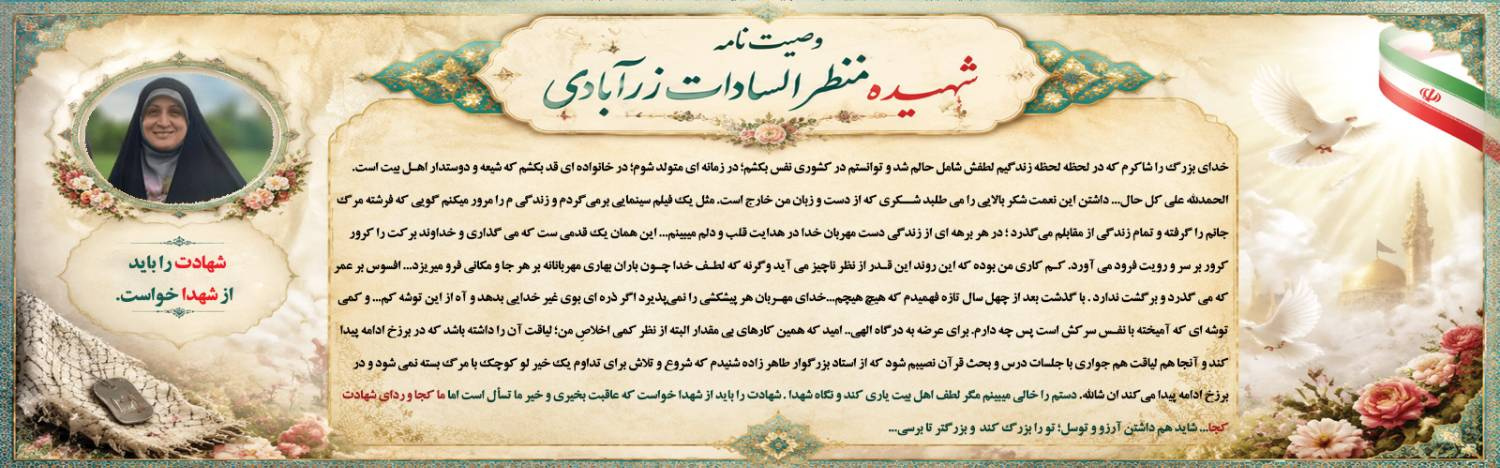 وصیت نامه
شهیده منظر السادات زرآبادی
خدای بزرگ را شاکرم که در لحظه لحظه زندگیم لطفش شامل حالم شد و توانستم در کشوری نفس بکشم؛ در زمانه ای متولد شوم؛ در خانواده ای قد بکشم که شیعه و دوستدار اهل بیت است.
الحمدلله علی کل حال... داشتن این نعمت شکر بالایی را می طلبد شکری که از دست و زبان من خارج است. مثل یک فیلم سینمایی برمی‌گردم و زندگی م را مرور میکنم گویی که فرشته مرگ
جانم را گرفته و تمام زندگی از مقابلم می‌گذرد ؛ در هر برهه ای از زندگی دست مهربان خدا در هدایت قلب و دلم میبینم... این همان یک قدمی ست که می گذاری و خداوند برکت را کرور
کرور بر سر و رویت فرود می آورد. کم کاری من بوده که این روند این قدر از نظر ناچیز می آید وگرنه که لطف خدا چون باران بهاری مهربانانه بر هر جا و مکانی فرو میریزد... افسوس بر عمر
که می گذرد و برگشت ندارد . با گذشت بعد از چهل سال تازه فهمیدم که هیچ هیچم...خدای مهربان هر پیشکشی را نمی‌پذیرد اگر ذره ای بوی غیر خدایی بدهد و آه از این توشه کم... و کمی
توشه ای که آمیخته با نفس سرکش است پس چه دارم. برای عرضه به درگاه الهی.. امید که همین کارهای بی مقدار البته از نظر کمی اخلاصِ من؛ لیاقت آن را داشته باشد که در برزخ ادامه پیدا
کند و آنجا هم لیاقت هم جواری با جلسات درس و بحث قرآن نصیبم شود که از استاد بزرگوار طاهر زاده شنیدم که شروع و تلاش برای تداوم یک خیر لو کوچک با مرگ بسته نمی شود و در
برزخ ادامه پیدا می کند ان شالله. دستم را خالی میبینم مگر لطف اهل بیت یاری کند و نگاه شهدا . شهادت را باید از شهدا خواست که عاقبت بخیری و خیر ما تسأل است اما ما کجا و ردای شهادت
کجا... شاید هم داشتن آرزو و توسل؛ تو را بزرگ کند و بزرگتر تا برسی...
شهادت را باید
از شهدا خواست.